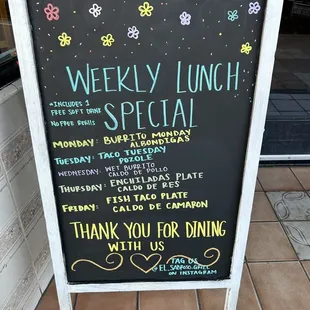 WEEKLY LUNCH
SPECIAL
*INCLUDES 1
FREE SOFT DRINK
NO FREE REFILLS
MONDAY: BURRITO MONDAY
ALBONDIGAS
TUESDAY: TACO TUESDAY
POZOLE
WEDNESDAY: WET BURRITO
CALDO DE POLLO
THURSDAY: ENCHILADAS PLATE
CALDO DE RES
FRIDAY: FISH TACO PLATE
CALDO DE CAMARON
THANK YOU FOR DINING
WITH US
TAG US
ON INSTAGRAM